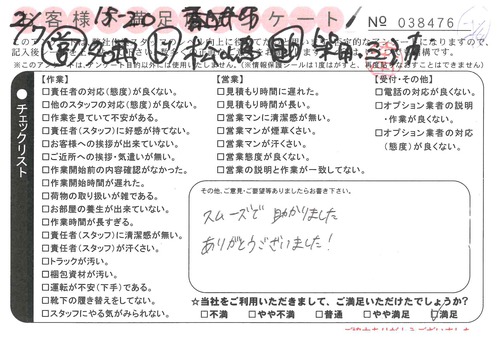 お客様満足アンケート
No 038476
※このアンケートは、アンケート目的以外には使用いたしません。(※情報保護シールは1度はがすと、再度貼りなおすことはできません)
チェックリスト
【作業】
□責任者の対応(態度)が良くない。
□他のスタッフの対応(態度)が良くない。
□作業を見ていて不安がある。
□責任者(スタッフ)に好感が持てない。
□お客様への挨拶が出来ていない。
□ご近所への挨拶・気遣いが無い。
□作業開始前の内容確認がなかった。
□作業開始時間が遅れた。
□荷物の取り扱いが雑である。
□お部屋の養生が出来ていない。
□作業時間が長すぎる。
□責任者(スタッフ)に清潔感が無い。
□責任者(スタッフ)が汗くさい。
□トラックが汚い。
□梱包資材が汚い。
□運転が不安(下手)である。
□靴下の履き替えをしてない。
□スタッフにやる気がみられない。
【営業】
□見積もり時間に遅れた。
□見積もり時間が長い。
□営業マンに清潔感が無い。
□営業マンが煙草くさい。
□営業マンが汗くさい。
□営業態度が良くない。
□営業の説明と作業が一致してない。
【受付・その他】
□電話の対応が良くない。
□オプション業者の説明
・作業が良くない。
□オプション業者の対応
(態度)が良くない。
その他、ご意見・ご要望等ありましたらお書き下さい。
スムーズで 助かりました
ありがとうございました!
☆当社をご利用いただきまして、ご満足いただけたでしょうか?
□不満 □やや不満 □普通 □やや満足 □満足